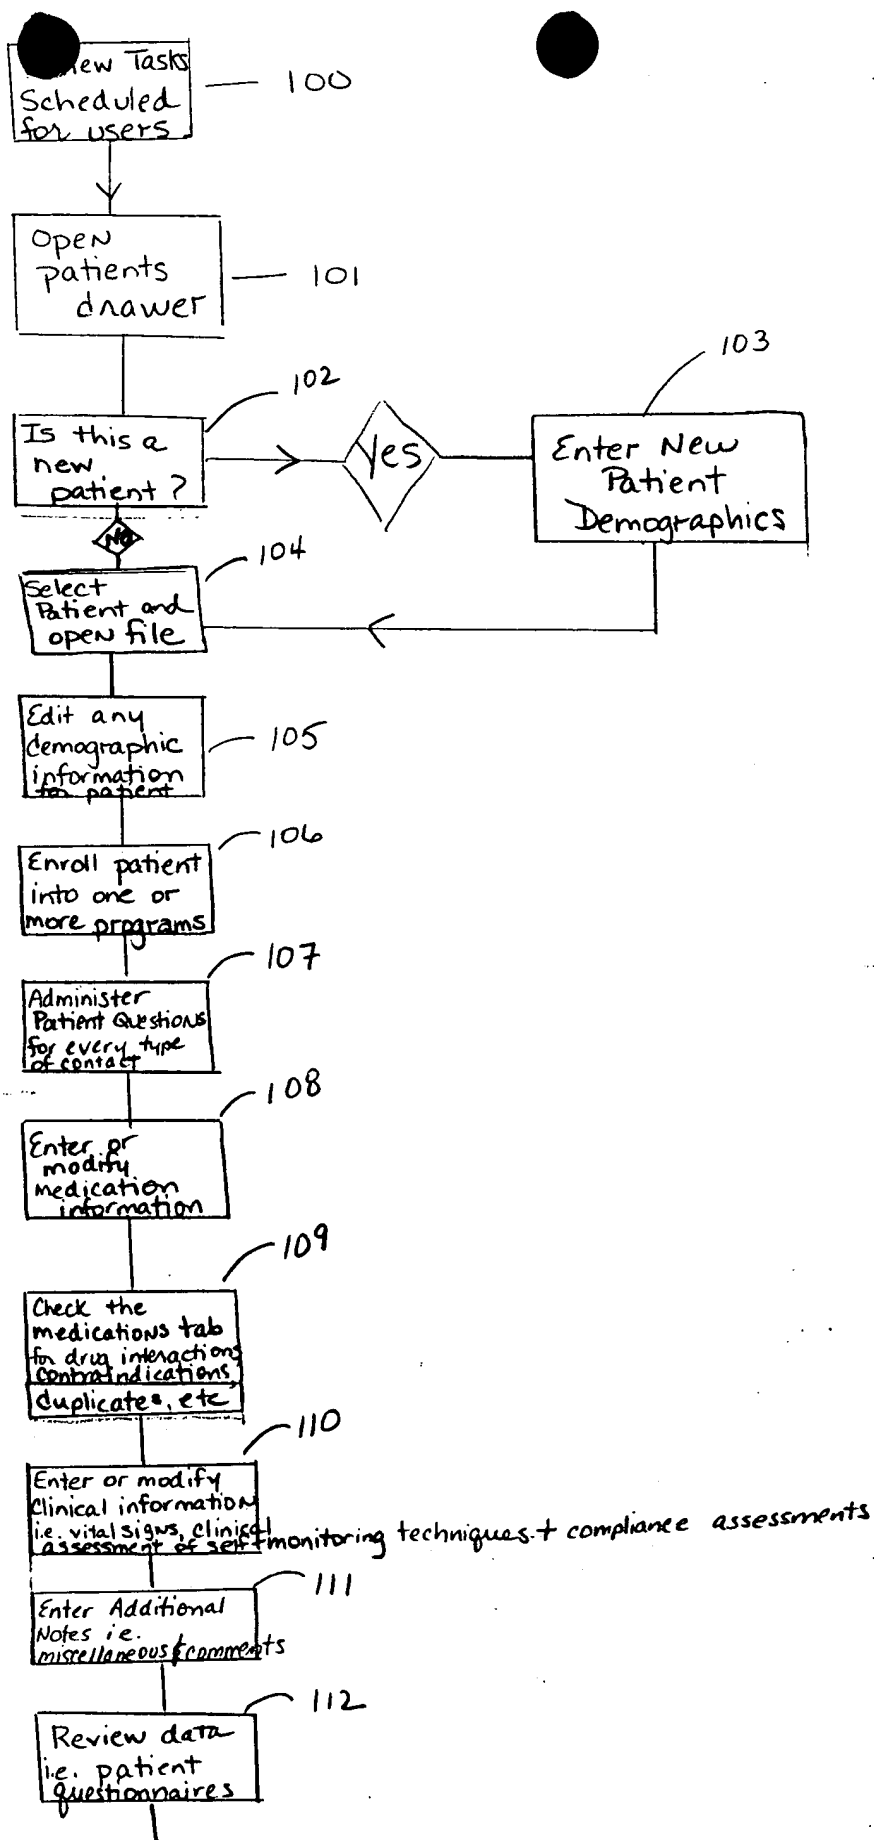 Tasks
Scheduled
for users
100
Open
patients
drawer
101
102
103
Is this a
new
patient?
Yes
Enter New
Patient
Demographics
No
104
Select
Patient and
open file
Edit any
demographic
information
for patient
105
106
Enroll patient
into one or
more programs
107
Administer
Patient Questions
for every type
of contact
108
Enter or
modify
medication
information
109
Check the
medications tab
for drug interactions,
contraindications,
duplicates, etc
110
Enter or modify
Clinical information
i.e. vital signs, clinical
assessment of self-monitoring techniques + compliance assessments
111
Enter Additional
Notes i.e.
miscellaneous & comments
112
Review data
i.e. patient
questionnaires